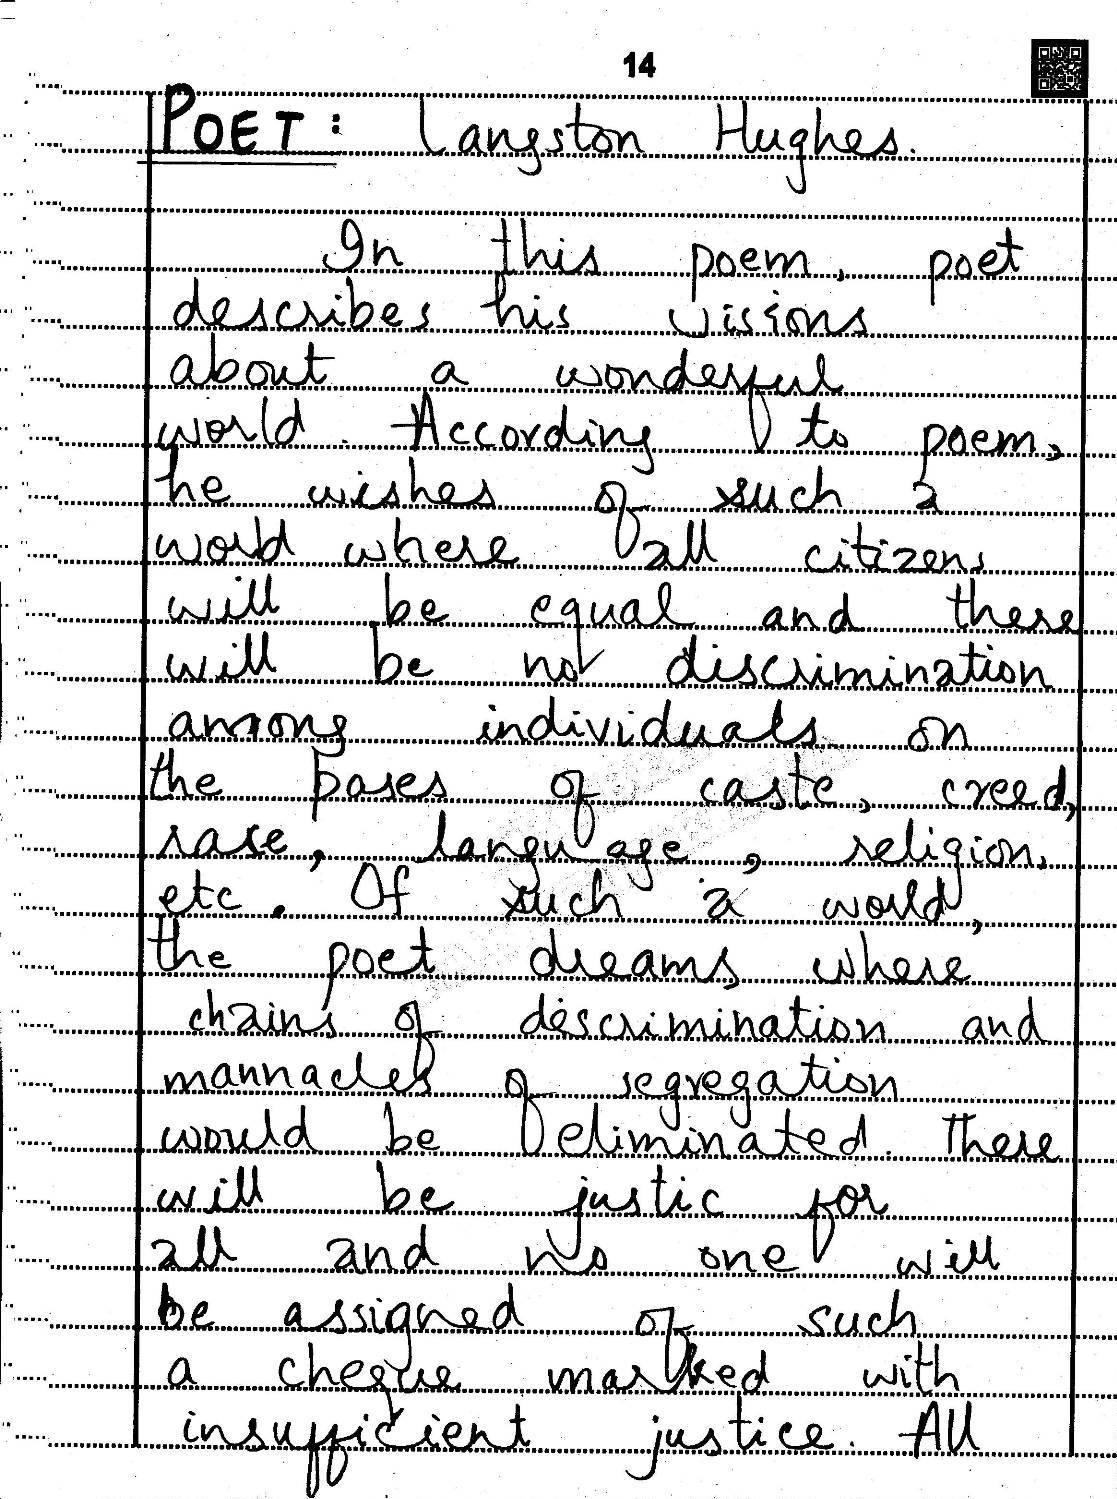 14
POET: Langston Hughes.
In this poem, poet
describes his visions
about a wonderful
world. According to poem,
he wishes of such a
world where all citizens
will be equal and there
will be not discrimination
among individuals on
the bases of caste, creed,
rase, language, religion,
etc. Of such a world,
the poet dreams, where
chains of discrimination and
mannacles of segregation
would be eliminated. There
will be justic for
all and no one will
be assigned of such
a cheque marked with
insufficient justice. All